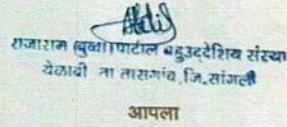 राजाराम (बुवा) पाटील बहुउद्देशिय संस्था
येळावी ता तासगांव, जि. सांगली
आपला